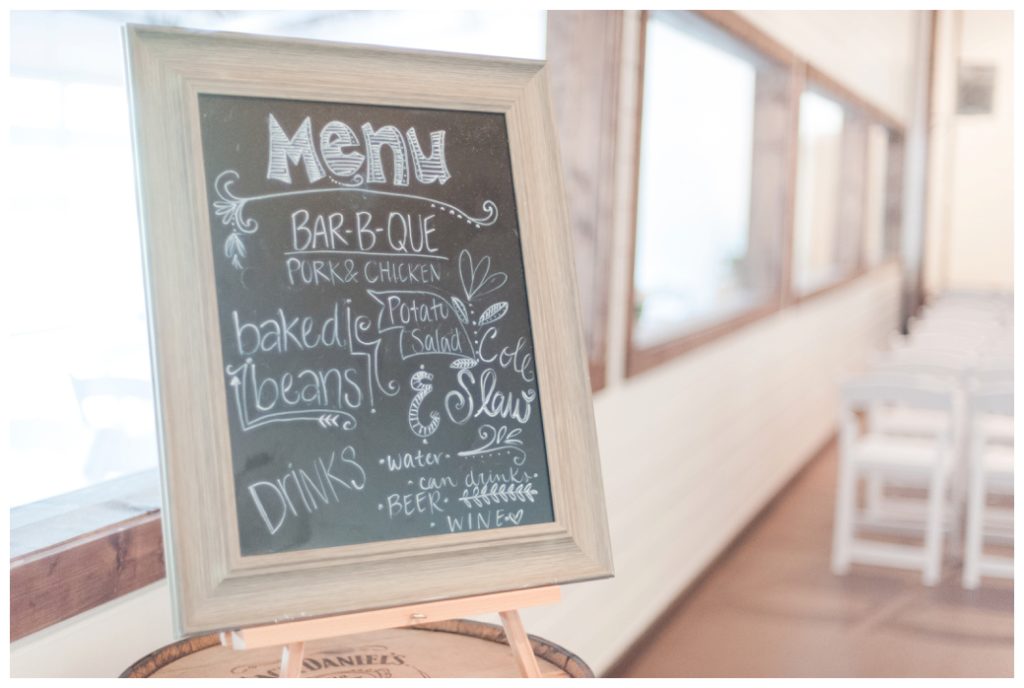 Menu
BAR-B-QUE
PORK & CHICKEN
baked
beans
Potato
Salad
&
Cole
Slaw
DRINKS
• water •
• can drinks •
BEER •
• WINE ♡
JACK DANIEL'S